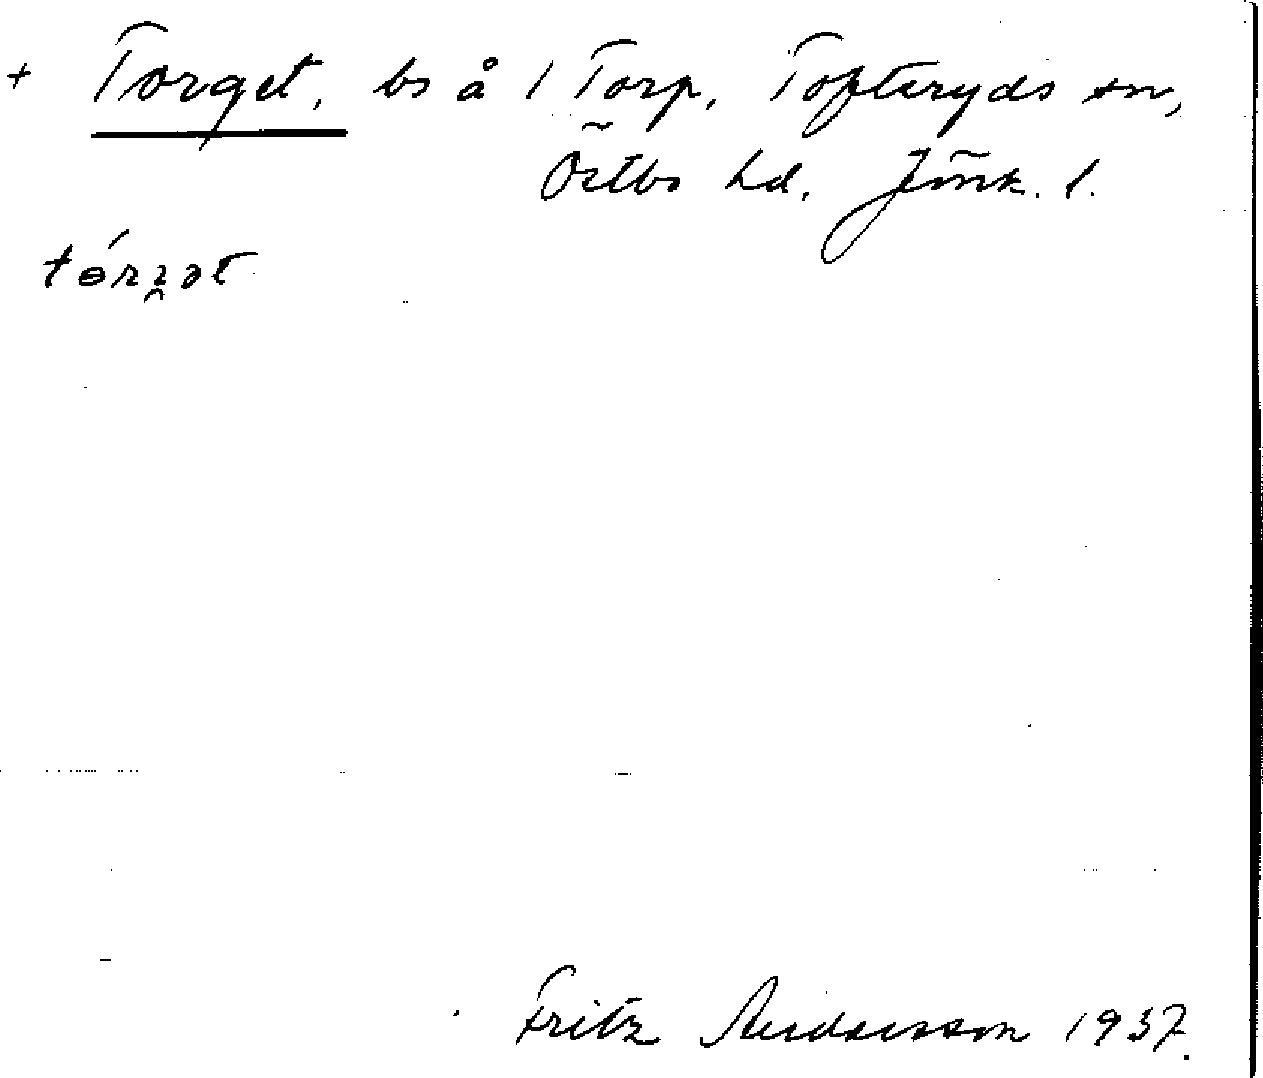 + Torget, bs å 1 Torp, Tofteryds sn,
Östbo hd. Jönk. l.
Fritz Andersson 1937.